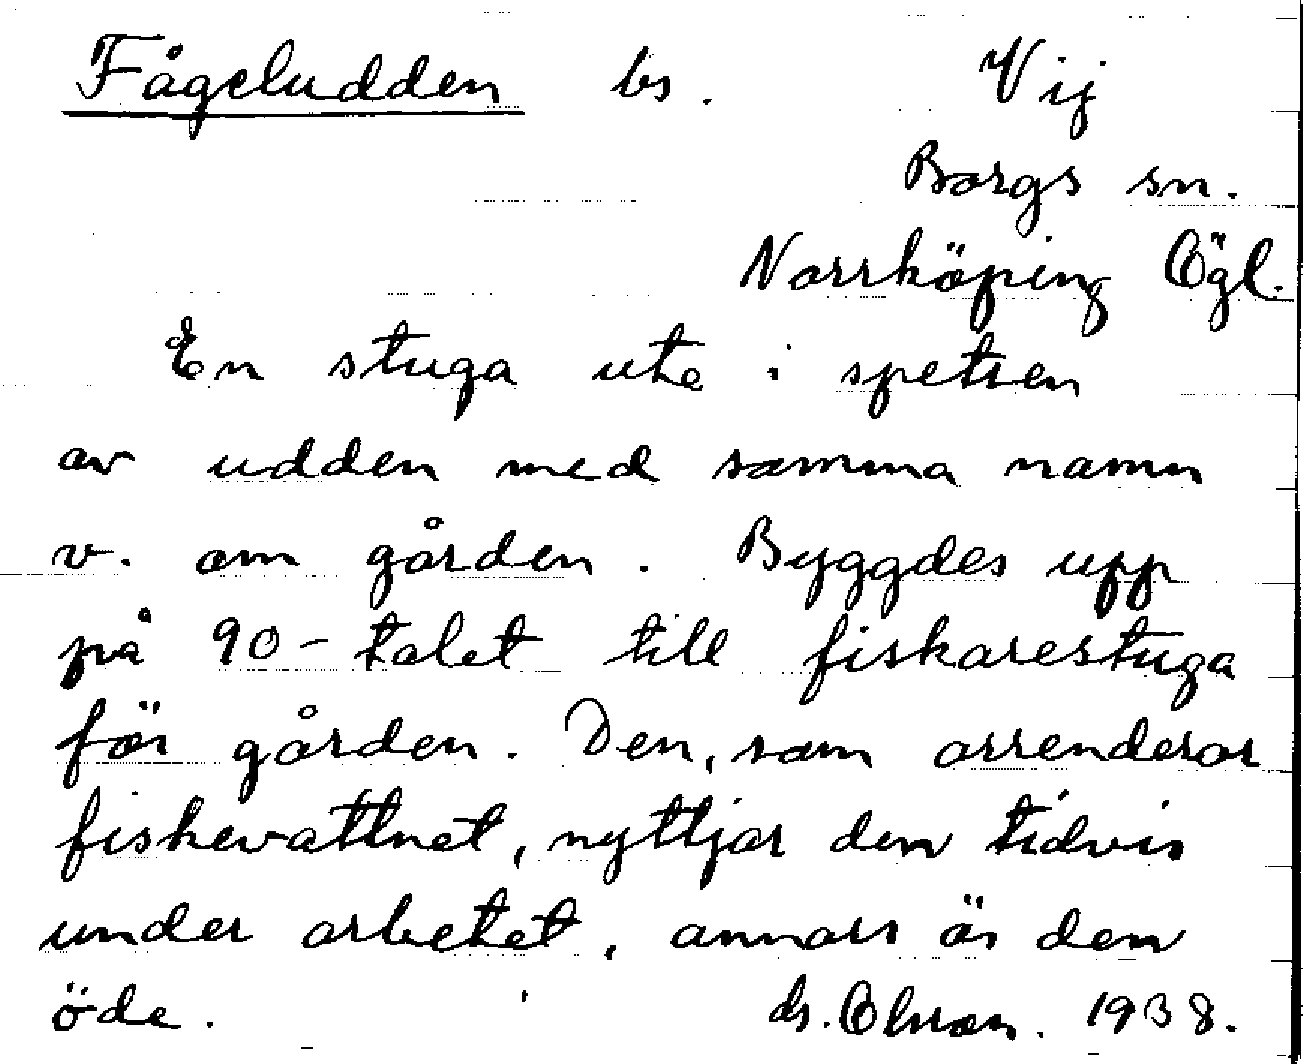 Fågeludden bs. Vij
Borgs sn.
Norrköping Ögl.
En stuga ute i spetsen
av udden med samma namn
v. om gården. Byggdes upp
på 90-talet till fiskarestuga
för gården. Den, som arrenderar
fiskevattnet, nyttjar den tidvis
under arbetet, annars är den
öde. Olsson. 1938.